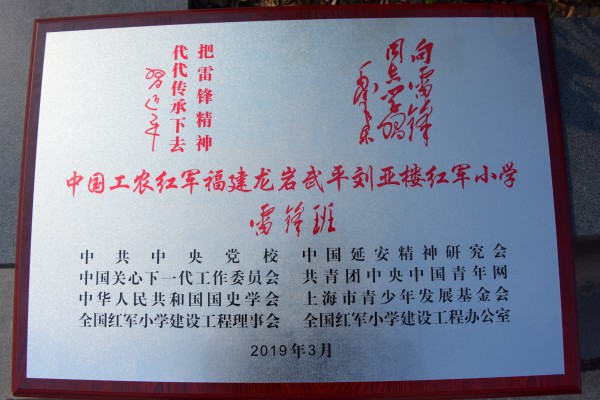 向雷锋
同志学习
毛泽东
把雷锋精神
代代传承下去
习近平
中国工农红军福建龙岩武平刘亚楼红军小学
雷锋班
中共中央党校 中国延安精神研究会
中国关心下一代工作委员会 共青团中央中国青年网
中华人民共和国国史学会 上海市青少年发展基金会
全国红军小学建设工程理事会 全国红军小学建设工程办公室
2019年3月